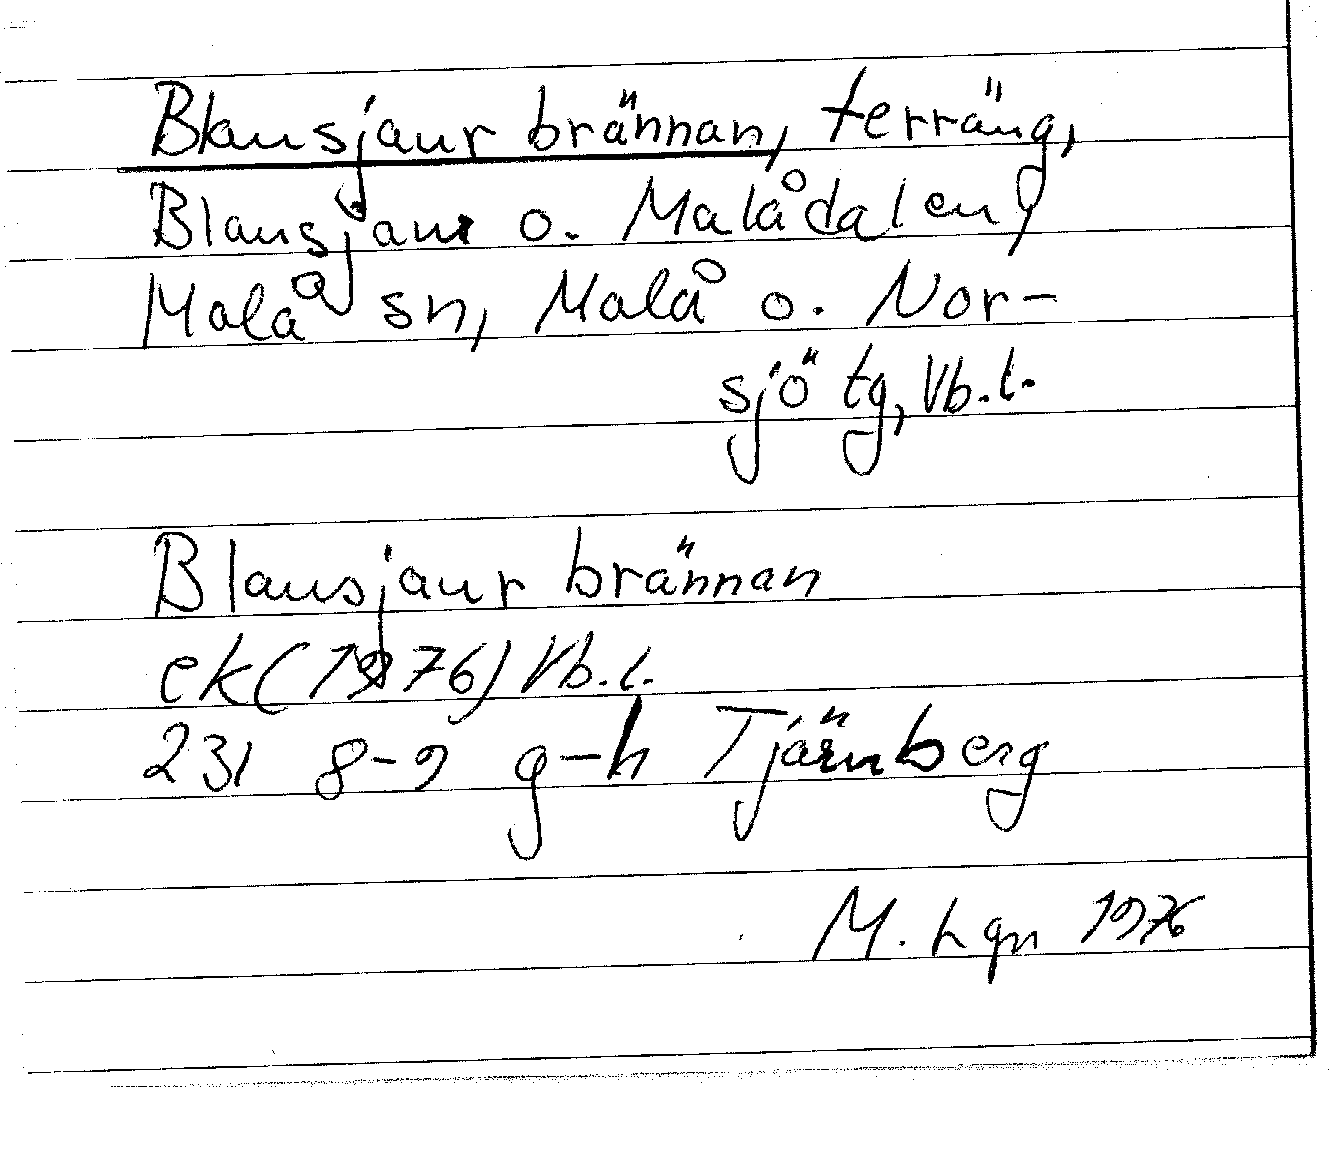 Blausjaur brännan, terräng,
Blausjaur o. Malådalen,
Malå sn, Malå o. Nor-
sjö tg, Vb.l.
Blausjaur brännan
ek (1976) Vb.l.
23I 8-9 g-h Tjärnberg
M. Lgn 1976